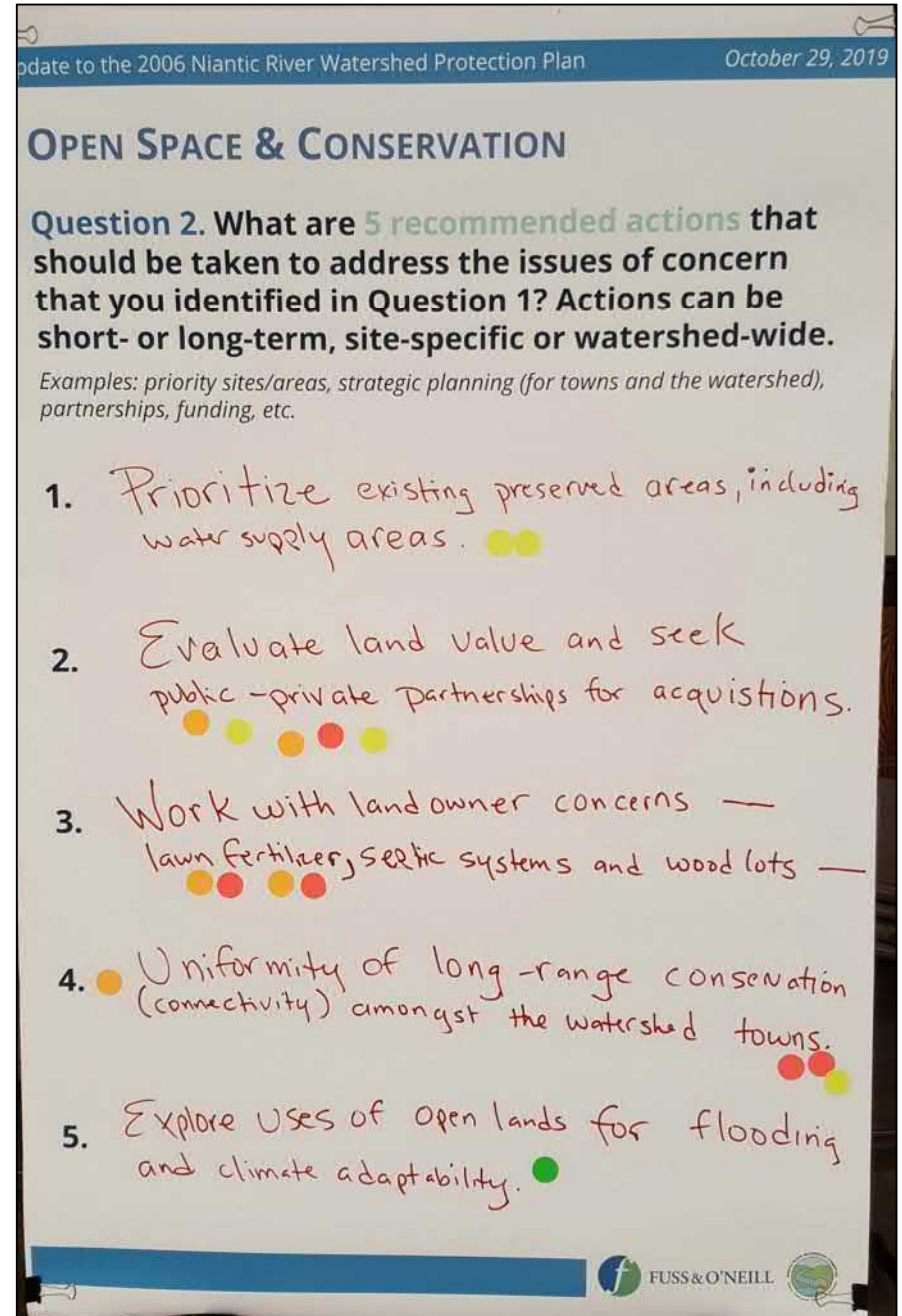 pdate to the 2006 Niantic River Watershed Protection Plan October 29, 2019
OPEN SPACE & CONSERVATION
Question 2. What are 5 recommended actions that
should be taken to address the issues of concern
that you identified in Question 1? Actions can be
short- or long-term, site-specific or watershed-wide.
Examples: priority sites/areas, strategic planning (for towns and the watershed),
partnerships, funding, etc.
1. Prioritize existing preserved areas, including
water supply areas.
2. Evaluate land value and seek
public-private partnerships for acquistions.
3. Work with landowner concerns —
lawn fertilizer, septic systems and wood lots —
4. Uniformity of long-range conservation
(connectivity) amongst the watershed towns.
5. Explore uses of open lands for flooding
and climate adaptability.
f FUSS & O'NEILL